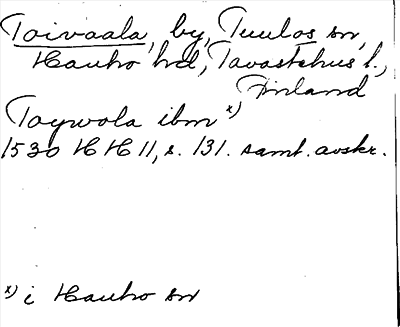 Toivaala, by, Tuulos sn,
Hauho hd, Tavastehus l.,
Finland
Toywola ibm x)
1530 HH II, s. 131. samt. avskr.
x) i Hauho sn